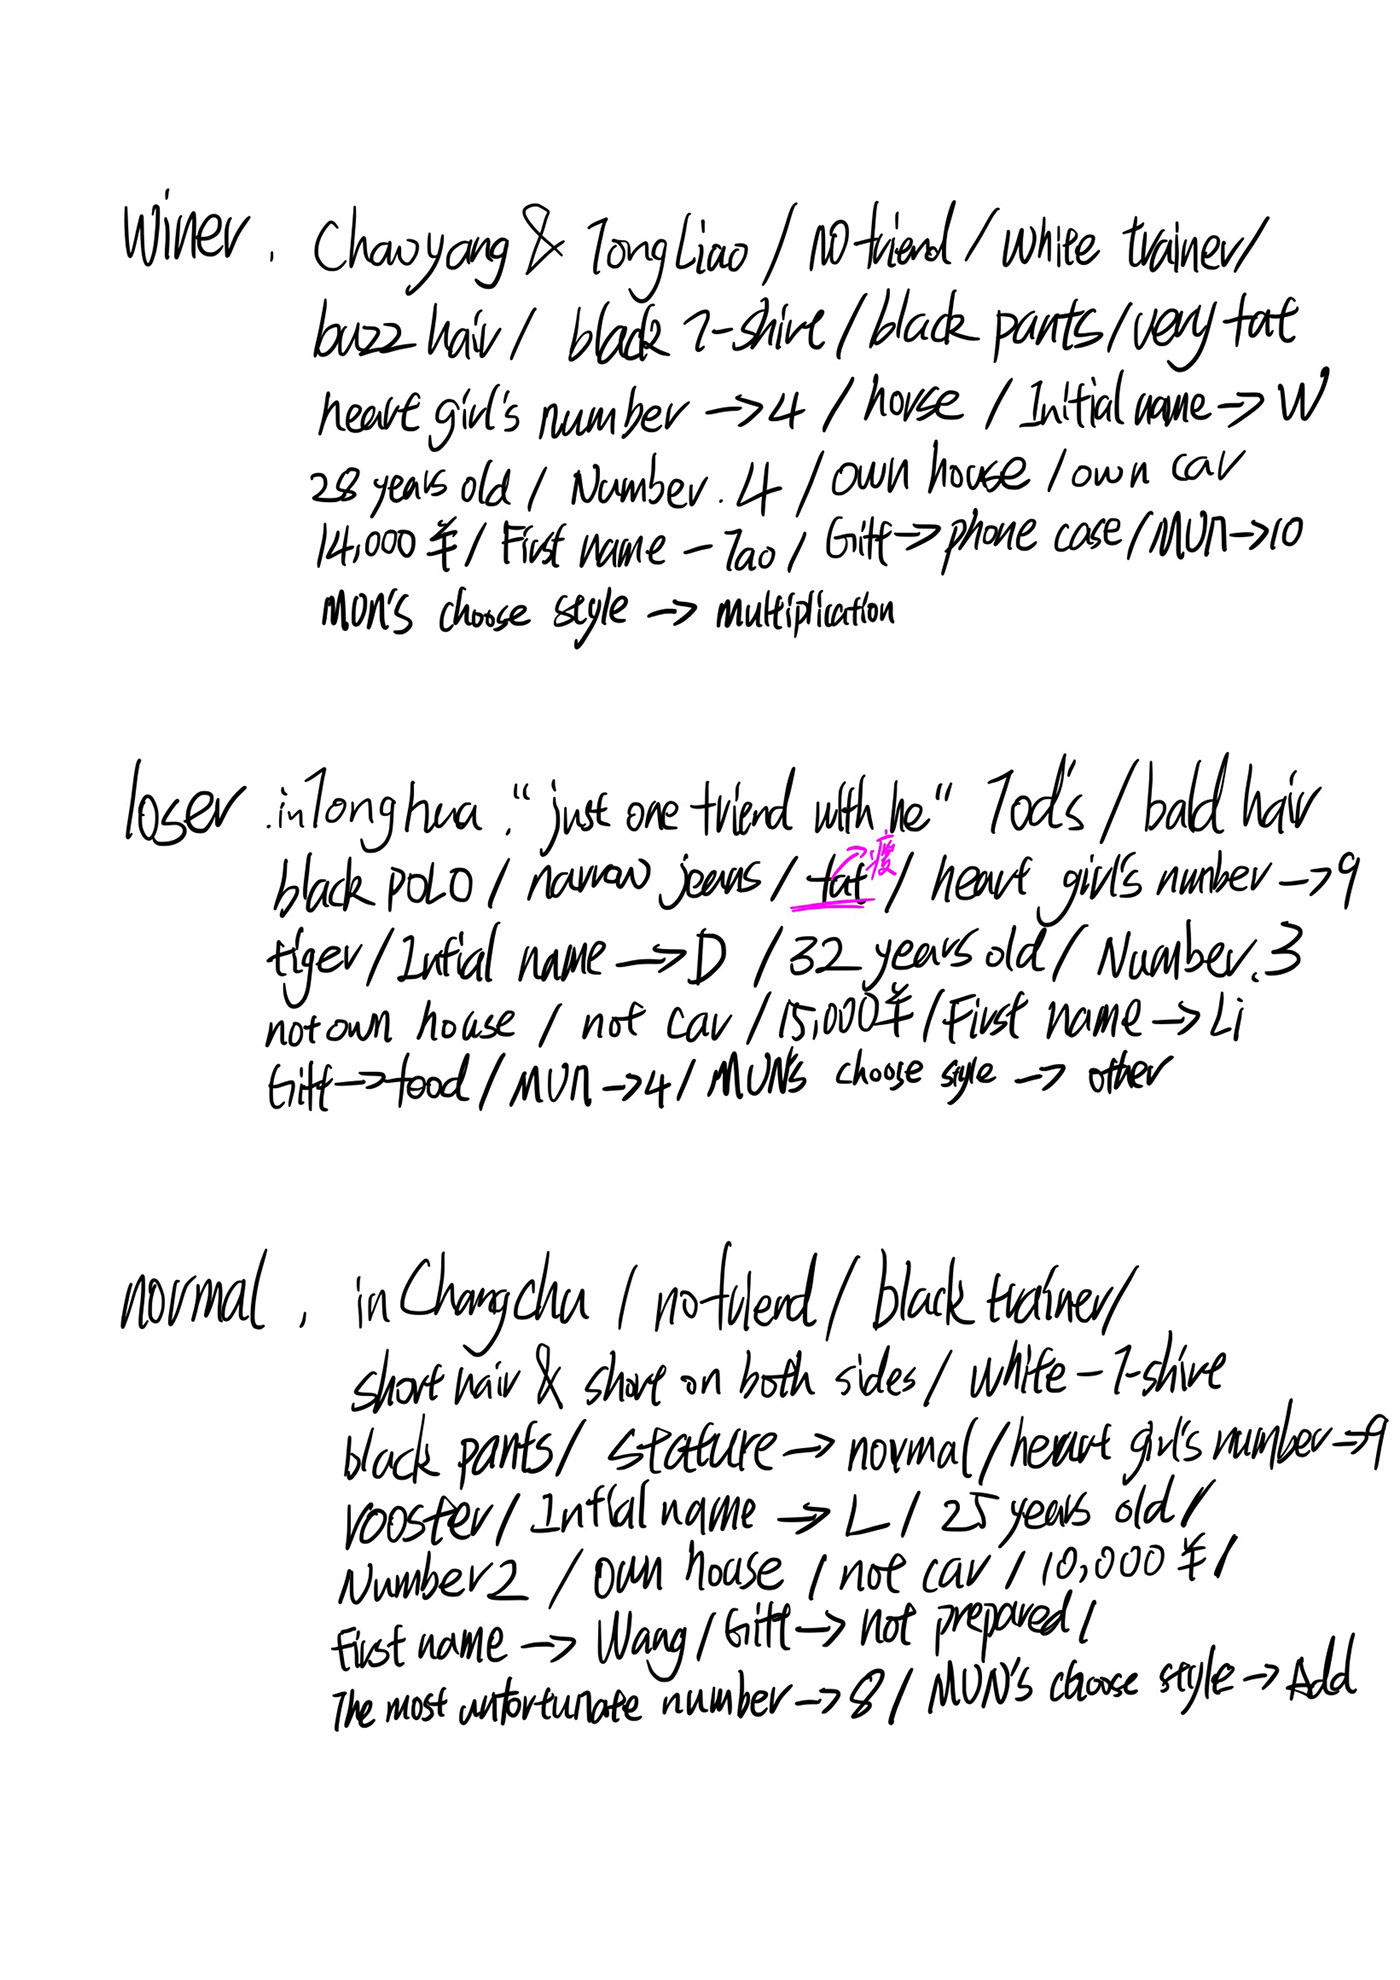 winer. Chaoyang & TongLiao / no friend / white trainer/
buzz hair / black T-shire / black pants / very fat
heart girl's number → 4 / horse / Initial name → W
28 years old / Number. 4 / own house / own car
14,000 ¥ / First name - Tao / Giff → phone case / MUN → 10
MUN'S choose style → multiplication
loser. in Tonghua. "just one friend with he" Tod's / bald hair
black POLO / narrow jeans / fat 瘦 / heart girl's number → 9
tiger / Intial name → D / 32 years old / Number. 3
not own house / not car / 15,000 ¥ / First name → Li
Giff → food / MUN → 4 / MUN'S choose style → other
normal. in Changchu / no friend / black trainer/
short hair & shore on both sides / white - T-shire
black pants / stature → normal / heart girl's number → 9
rooster / Intial name → L / 25 years old /
Number 2 / own house / not car / 10,000 ¥ /
First name → Wang / Giff → not prepared /
The most unfortunate number → 8 / MUN'S choose style → Add